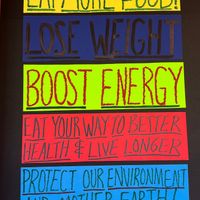 EAT MORE FOOD!
LOSE WEIGHT
BOOST ENERGY
EAT YOUR WAY TO BETTER
HEALTH & LIVE LONGER
PROTECT OUR ENVIRONMENT
AND MOTHER EARTH!